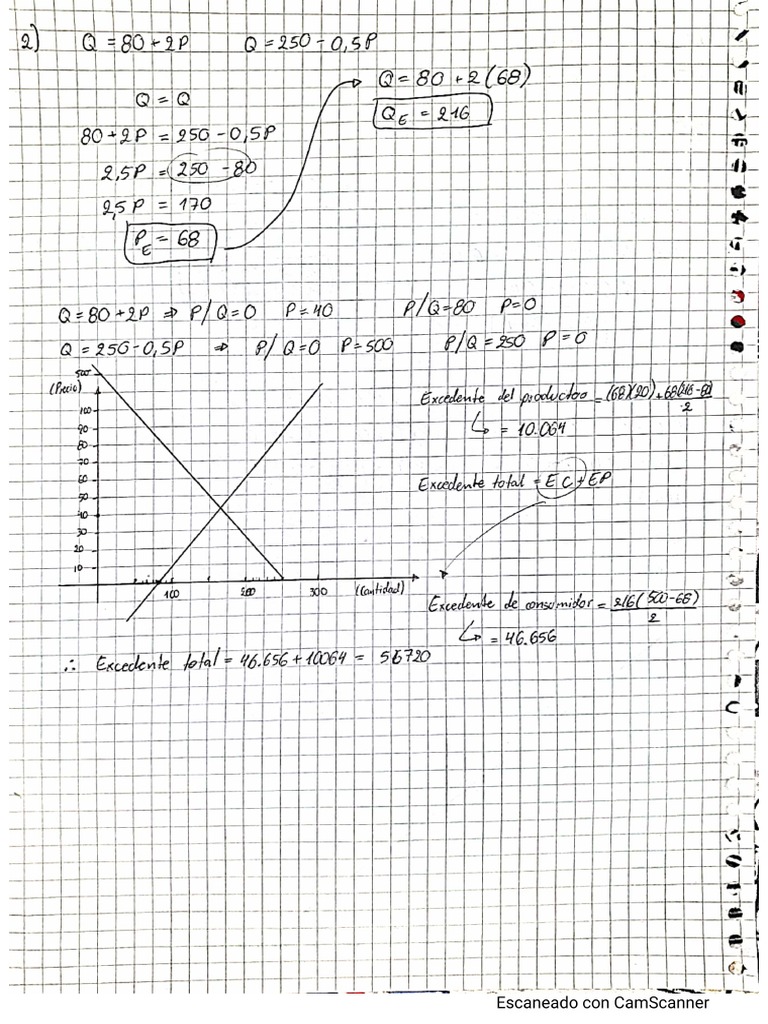 2) Q = 80 + 2P Q = 250 - 0,5P
Q = Q
80 + 2P = 250 - 0,5P
2,5P = 250 - 80
2,5P = 170
P_E = 68
Q = 80 + 2(68)
Q_E = 216
Q = 80 + 2P ⇒ P/Q=0 P=40 P/Q=80 P=0
Q = 250 - 0,5P ⇒ P/Q=0 P=500 P/Q=250 P=0
500
(Precio)
100
90
80
70
60
50
40
30
20
10
100 200 300 (Cantidad)
Excedente del productor = (68)(80) + 68(216-80)/2
↳ = 10.064
Excedente total = EC + EP
Excedente de consumidor = 216(500-68)/2
↳ = 46.656
∴ Excedente total = 46.656 + 10064 = 56720
Escaneado con CamScanner